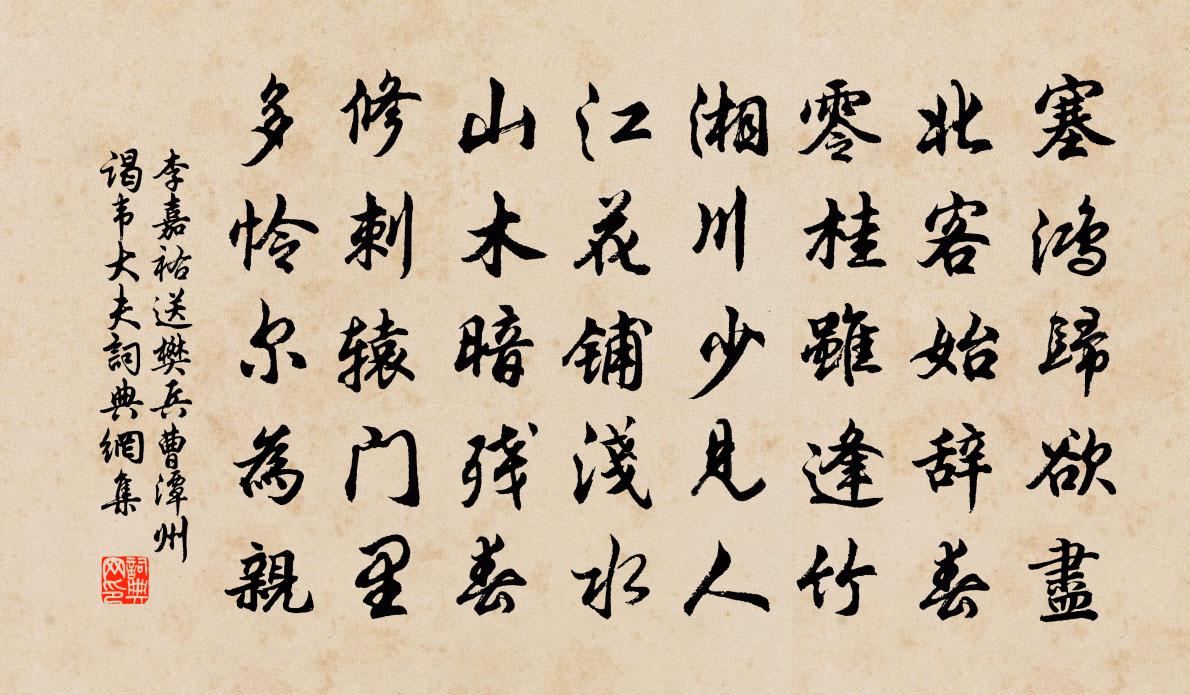 塞鴻歸欲盡
北客始辞春
零桂雖逢竹
湘川少見人
江花铺淺水
山木暗残春
修刺辕门里
多怜尔為親
李嘉祐送樊兵曹潭州
谒韦大夫詞典網集
詞典网印